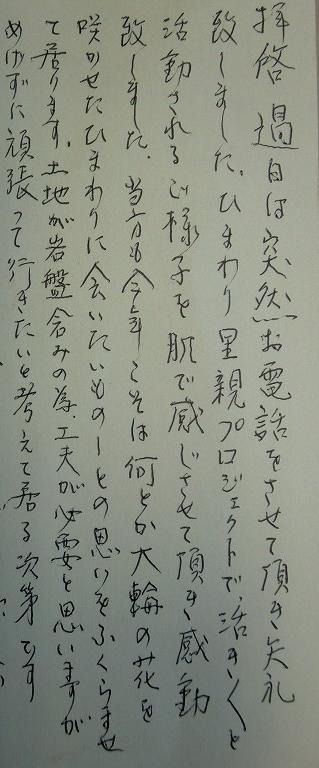 拝啓 過日は突然お電話をさせて頂き失礼
致しました。ひまわり里親プロジェクトで、活き〱と
活動されるご様子を肌で感じさせて頂き感動
致しました。当方も今年こそは何とか大輪の花を
咲かせたひまわりに会いたいものーとの思いをふくらませ
て居ります。土地が岩盤含みの為、工夫が必要と思いますが
めげずに頑張って行きたいと考えて居る次第です